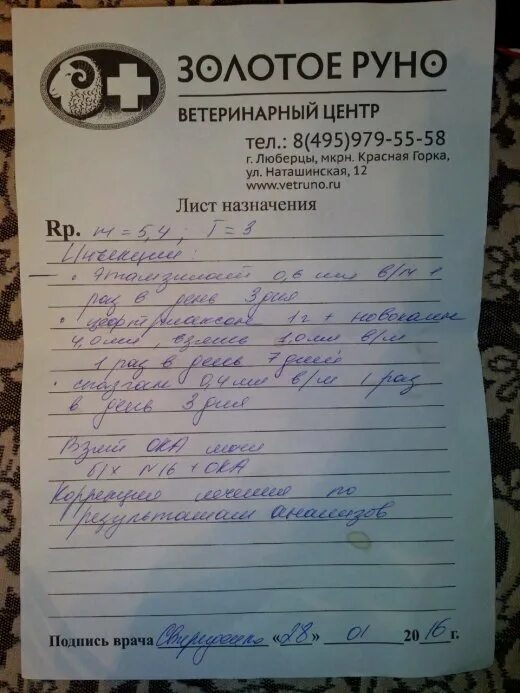 ЗОЛОТОЕ РУНО
ВЕТЕРИНАРНЫЙ ЦЕНТР
тел.: 8(495)979-55-58
г. Люберцы, мкрн. Красная Горка,
ул. Наташинская, 12
www.vetruno.ru
Лист назначения
Rp. m = 5,4 ; T = 3
Инъекции:
• Этамзилат 0,6 мл в/м 1
раз в день 3 дня
• цефтриаксон 1 г + новокаин
4,0 мл, взять 1,0 мл в/м
1 раз в день 7 дней
• спазган 0,4 мл в/м 1 раз
в день 3 дня
Взят ОКА мочи
б/х N16 + ОКА
Коррекция лечения по
результатам анализов
Подпись врача «28» 01 2016 г.